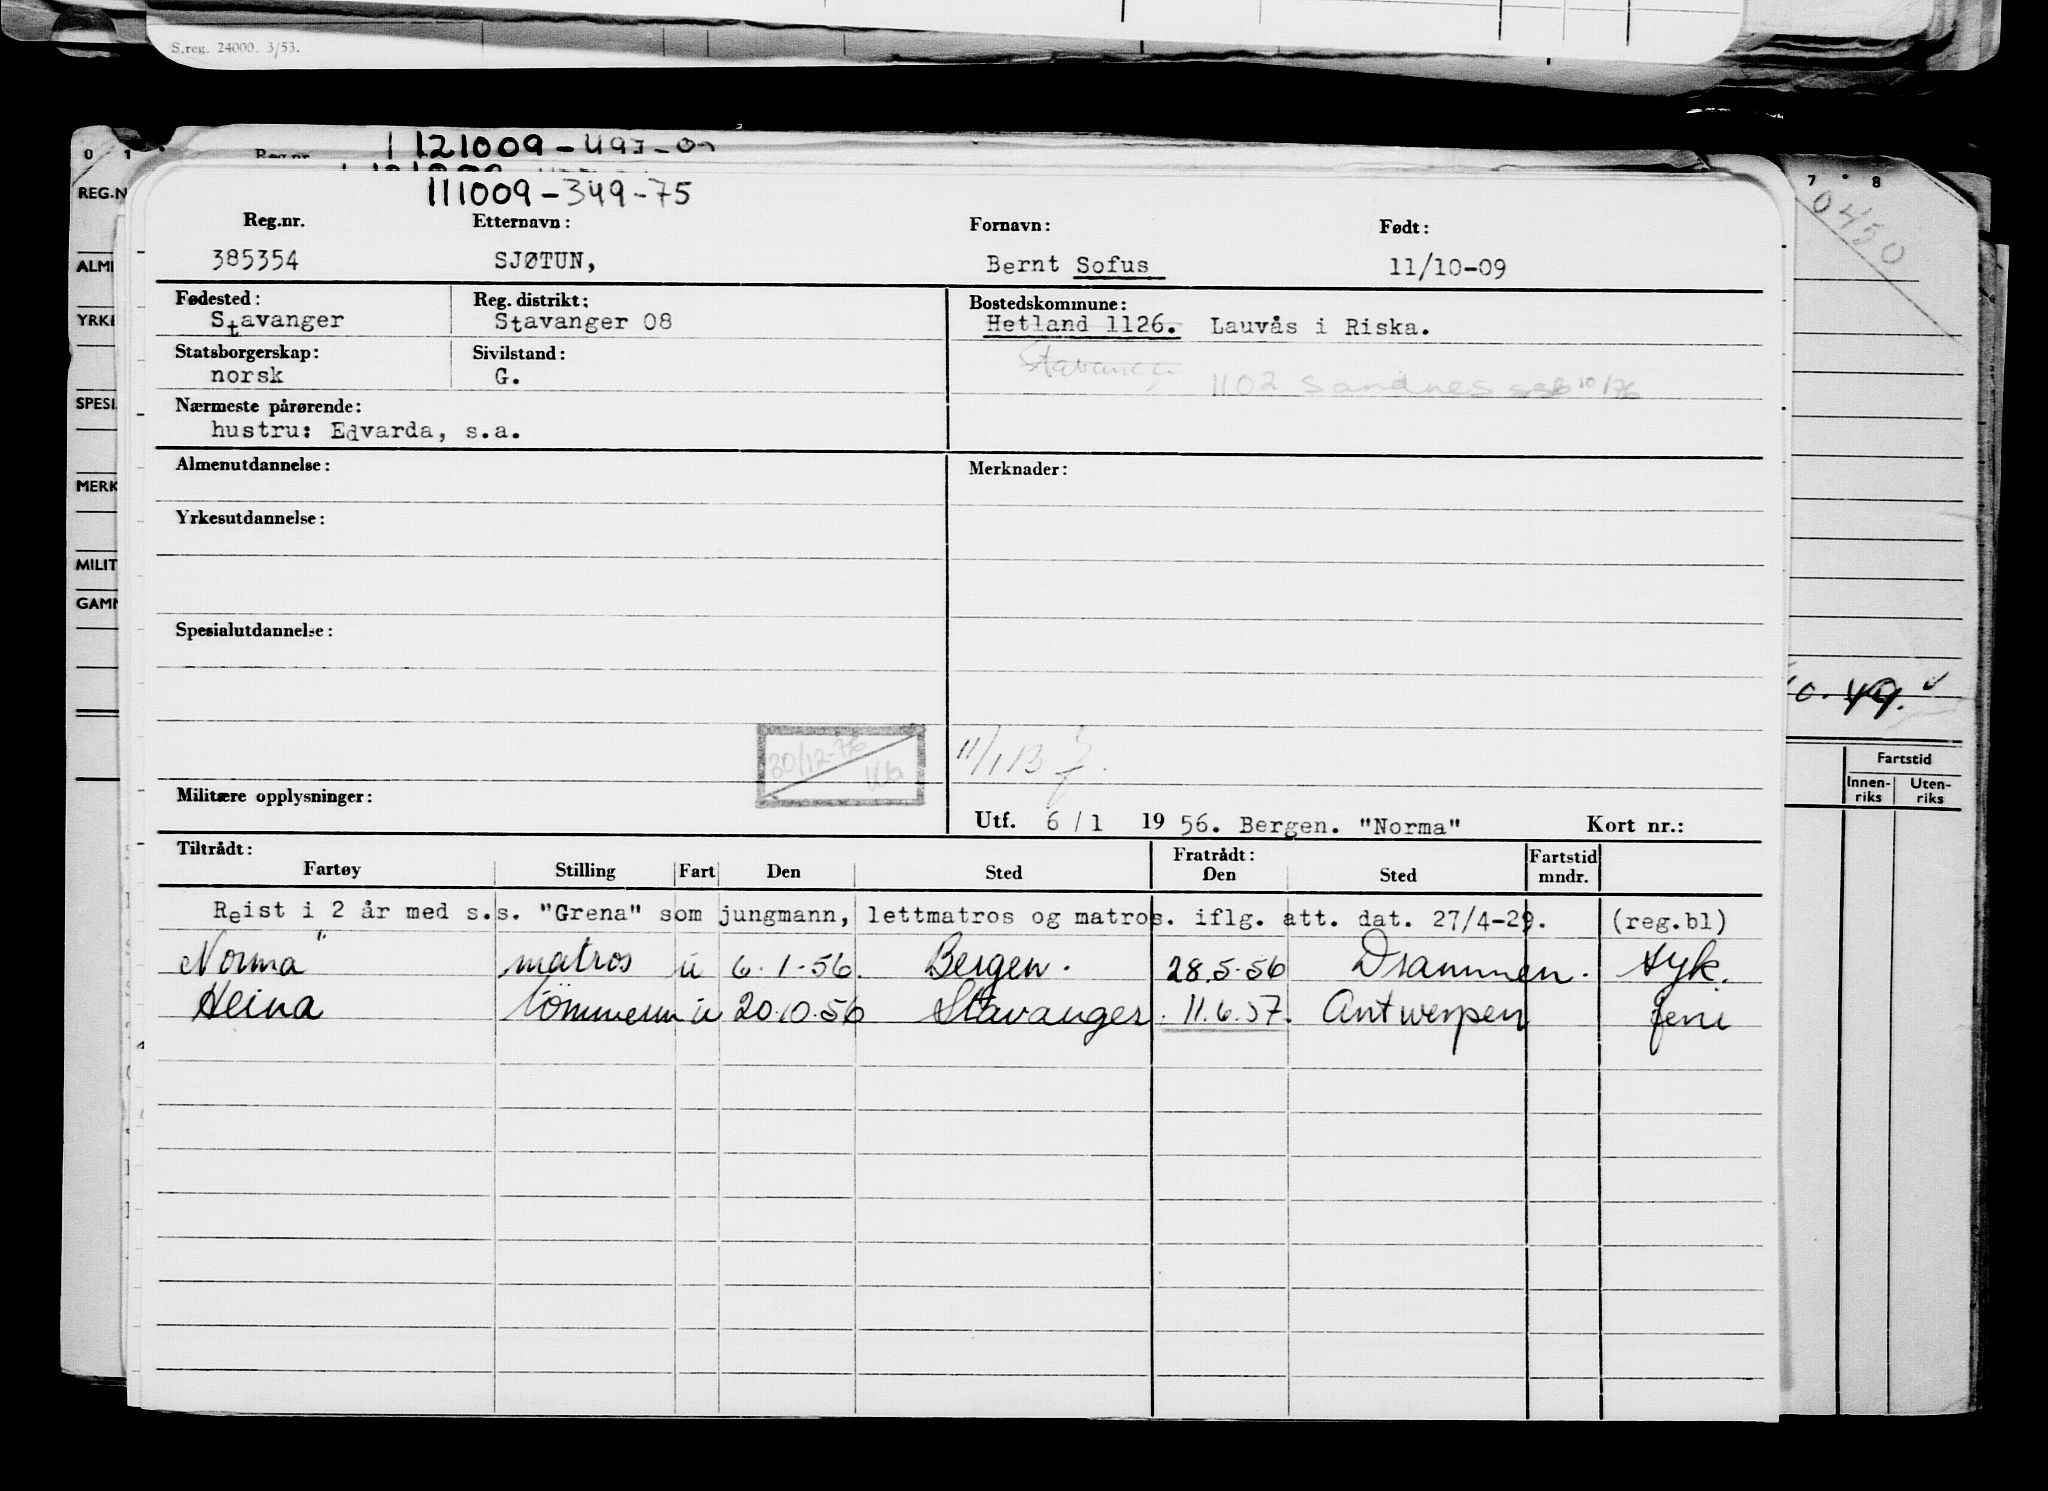 S.reg. 24000. 3/53.
0 1
Reg.nr. 121009-493-0
REG.N
7 8
0450
111009-349-75
Reg.nr. Etternavn: Fornavn: Født:
385354 SJØTUN, Bernt Sofus 11/10-09
ALM
Fødested: Reg. distrikt: Bostedskommune:
YRKE
Stavanger Stavanger 08 Hetland 1126. Lauvås i Riska.
Statsborgerskap: Sivilstand: Stavanger
norsk G. 1102 Sandnes 10/76
SPESI
Nærmeste pårørende:
hustru: Edvarda, s.a.
Almenutdannelse: Merknader:
MERK
Yrkesutdannelse:
MILIT
GAMM
Spesialutdannelse:
0.49.
30/12-76
11/1 13
Fartstid
Innen-riks Uten-riks
Militære opplysninger:
Utf. 6/1 1956. Bergen. "Norma" Kort nr.:
Tiltrådt: Fratrådt: Fartstid
Fartøy Stilling Fart Den Sted Den Sted mndr.
Reist i 2 år med s.s. "Grena" som jungmann, lettmatros og matros. iflg. att. dat. 27/4-29. (reg.bl)
Norma" matros u 6.1.56. Bergen. 28.5.56 Drammen. Hyk.
Heina tömmerm u 20.10.56 Stavanger. 11.6.57. Antwerpen feri